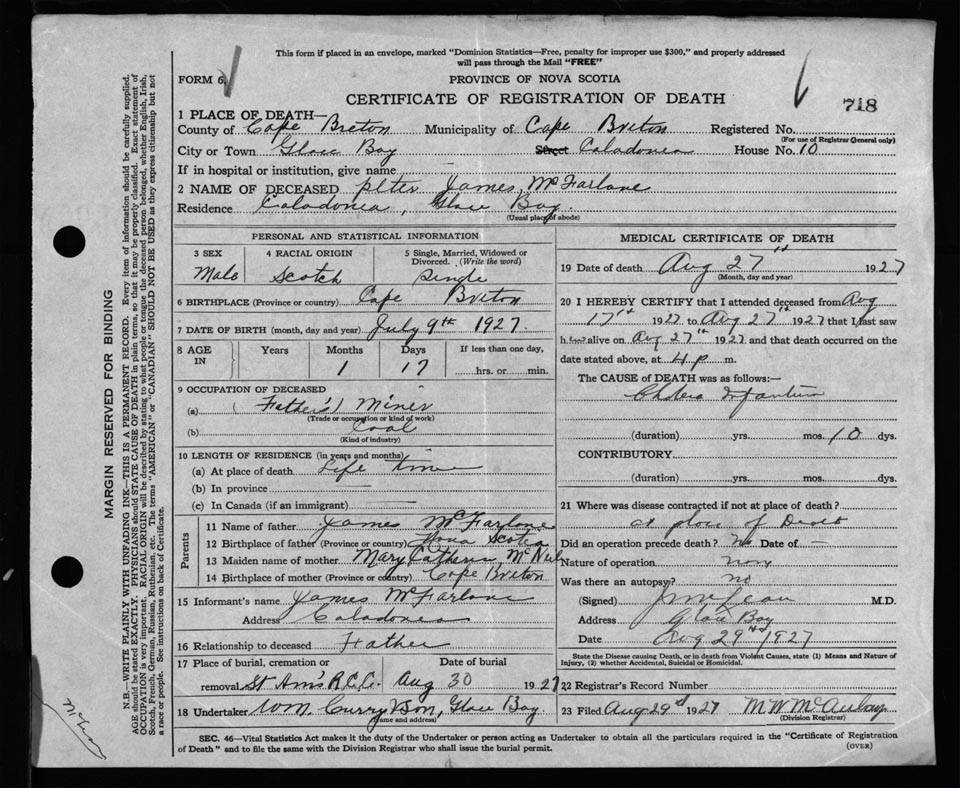 This form if placed in an envelope, marked "Dominion Statistics—Free, penalty for improper use $300," and properly addressed
will pass through the Mail "FREE"
FORM 6.
PROVINCE OF NOVA SCOTIA
CERTIFICATE OF REGISTRATION OF DEATH
718
1 PLACE OF DEATH—
County of Cape Breton Municipality of Cape Breton Registered No.
(For use of Registrar General only)
City or Town Glace Bay Street Caladonia House No. 10
If in hospital or institution, give name
2 NAME OF DECEASED Peter James, McFarlane
Residence Caladonia, Glace Bay.
(Usual place of abode)
PERSONAL AND STATISTICAL INFORMATION
3 SEX 4 RACIAL ORIGIN 5 Single, Married, Widowed or
Divorced. (Write the word)
Male Scotch Single
6 BIRTHPLACE (Province or country) Cape Breton
7 DATE OF BIRTH (month, day and year) July 9th 1927.
8 AGE IN Years Months Days If less than one day,
1 17 hrs. or min.
9 OCCUPATION OF DECEASED
(a) (Father's) Miner
(Trade or occupation or kind of work)
(b) Coal
(Kind of industry)
10 LENGTH OF RESIDENCE (in years and months)
(a) At place of death Life time
(b) In province
(c) In Canada (if an immigrant)
Parents
11 Name of father James McFarlane
12 Birthplace of father (Province or country) Nova Scotia
13 Maiden name of mother Mary Catherine McNeil
14 Birthplace of mother (Province or country) Cape Breton
15 Informant's name James McFarlane
Address Caladonia
16 Relationship to deceased Father
17 Place of burial, cremation or Date of burial
removal St Ann's R.C.C. Aug 30 1927
18 Undertaker Wm. Curry & Son, Glace Bay
(Name and address)
MEDICAL CERTIFICATE OF DEATH
19 Date of death Aug 27th 1927
(Month, day and year)
20 I HEREBY CERTIFY that I attended deceased from Aug
17th 1927 to Aug 27th 1927 that I last saw
him alive on Aug 27th 1927. and that death occurred on the
date stated above, at 4 p m.
The CAUSE OF DEATH was as follows:—
Cholera Infantum
(duration) yrs. mos. 10 dys.
CONTRIBUTORY
(duration) yrs. mos. dys.
21 Where was disease contracted if not at place of death?
at place of Death
Did an operation precede death? No Date of —
Nature of operation none
Was there an autopsy? no
(Signed) J McLean M.D.
Address Glace Bay
Date Aug 29th 1927
State the Disease causing Death, or in death from Violent Causes, state (1) Means and Nature of
Injury, (2) whether Accidental, Suicidal or Homicidal.
22 Registrar's Record Number
23 Filed Aug 29th 1927 M W McAulay
(Division Registrar)
SEC. 46—Vital Statistics Act makes it the duty of the Undertaker or person acting as Undertaker to obtain all the particulars required in the "Certificate of Registration
of Death" and to file the same with the Division Registrar who shall issue the burial permit.
(OVER)
MARGIN RESERVED FOR BINDING
N.B.—WRITE PLAINLY WITH UNFADING INK—THIS IS A PERMANENT RECORD. Every item of information should be carefully supplied.
AGE should be stated EXACTLY. PHYSICIANS should STATE CAUSE OF DEATH in plain terms, so that it may be properly classified. Exact statement of
OCCUPATION is very important. RACIAL ORIGIN will be described by stating to what people or tongue the deceased person belonged, whether English, Irish,
Scotch, French, German, Russian, Ruthenian, etc. The terms "AMERICAN" or "CANADIAN" SHOULD NOT BE USED as they express citizenship but not
a race or people. See instructions on back of Certificate.